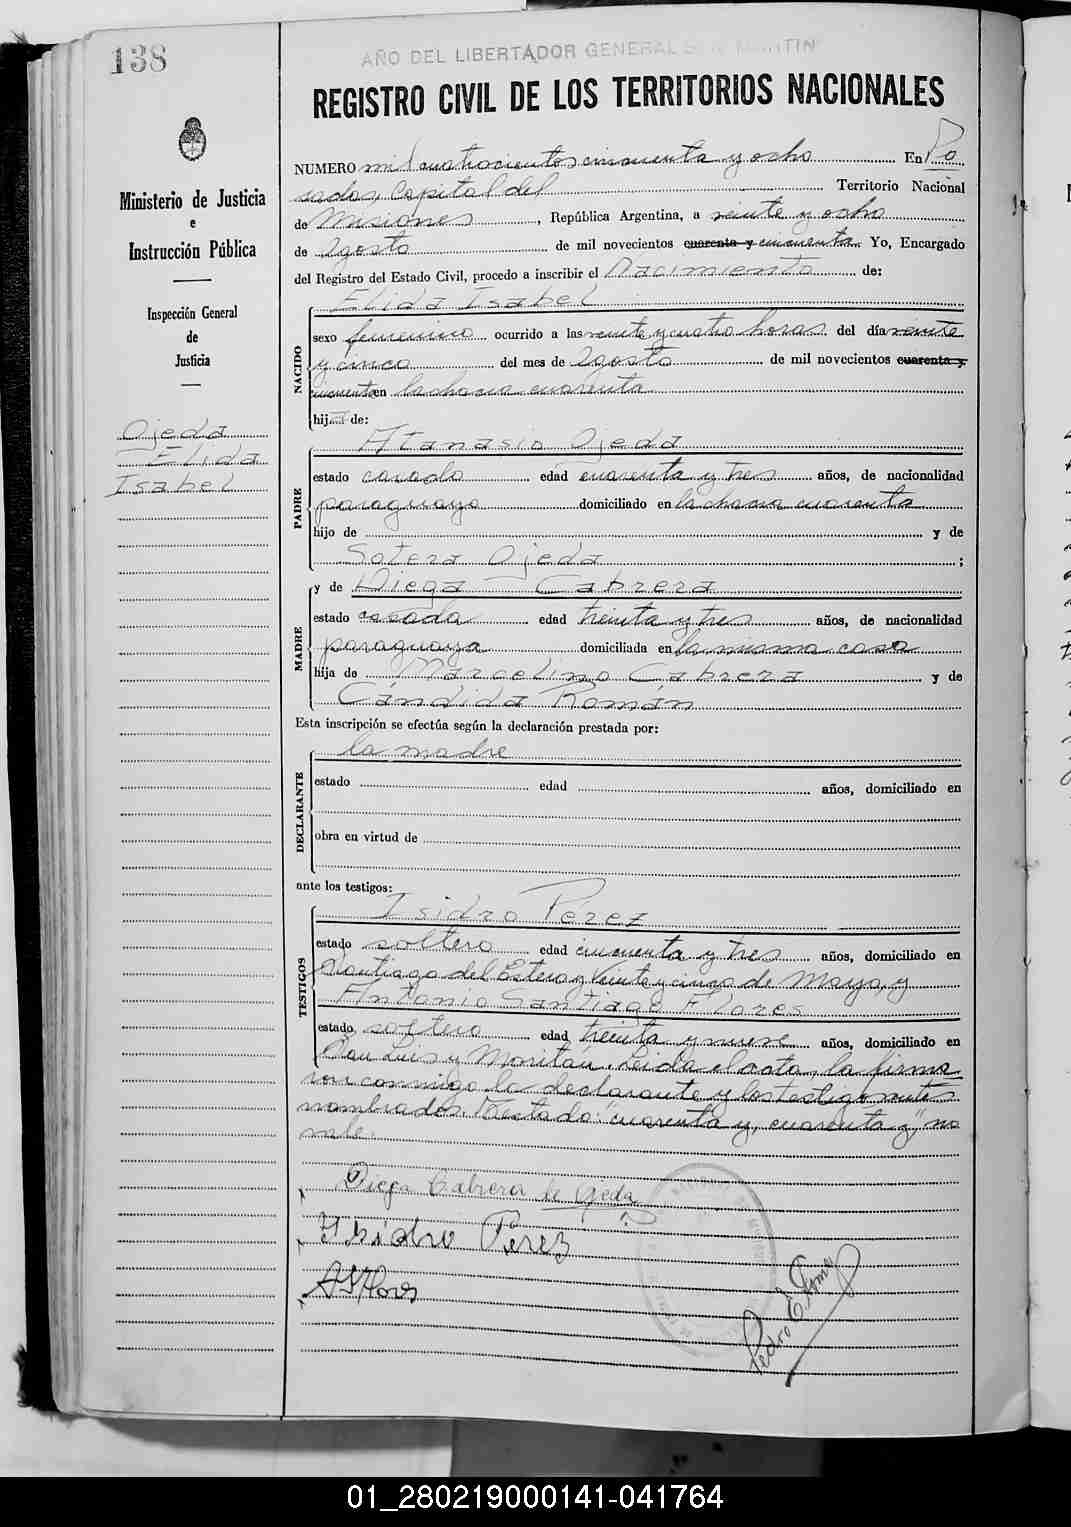 138
AÑO DEL LIBERTADOR GENERAL SAN MARTIN
REGISTRO CIVIL DE LOS TERRITORIOS NACIONALES
Ministerio de Justicia
e
Instrucción Pública
Inspección General
de
Justicia
Ojeda
Elida
Isabel
NUMERO mil cuatrocientos cincuenta y ocho En Po
sadas, Capital del Territorio Nacional
de Misiones, República Argentina, a veinte y ocho
de Agosto de mil novecientos cuarenta y cincuenta. Yo, Encargado
del Registro del Estado Civil, procedo a inscribir el Nacimiento de:
NACIDO
Elida Isabel
sexo femenino ocurrido a las veinte y cuatro horas del día veinte
y cinco del mes de Agosto de mil novecientos cuarenta y
cincuenta en la chacra cuarenta
hij de:
PADRE
Atanasio Ojeda
estado casado edad cuarenta y tres años, de nacionalidad
paraguayo domiciliado en la chacra cuarenta
hijo de y de
Sotera Ojeda ;
MADRE
y de Diega Cabrera
estado casada edad treinta y tres años, de nacionalidad
paraguaya domiciliada en la misma casa
hija de Marcelino Cabrera y de
Cándida Román
Esta inscripción se efectúa según la declaración prestada por:
DECLARANTE
la madre
estado edad años, domiciliado en
obra en virtud de
ante los testigos:
TESTIGOS
Isidro Perez
estado soltero edad cincuenta y tres años, domiciliado en
Santiago del Estero y Veinte y cinco de Mayo, y
Antonio Santiago Flores
estado soltero edad treinta y nueve años, domiciliado en
San Luis y Moritán. Leida el acta, la firma
ron conmigo la declarante y los testigos antes
nombrados. Testado: "cuarenta y, cuarenta y," no
vale.
Diega Cabrera de Ojeda
Isidro Perez
ASFlores
Pedro E.
01_280219000141-041764